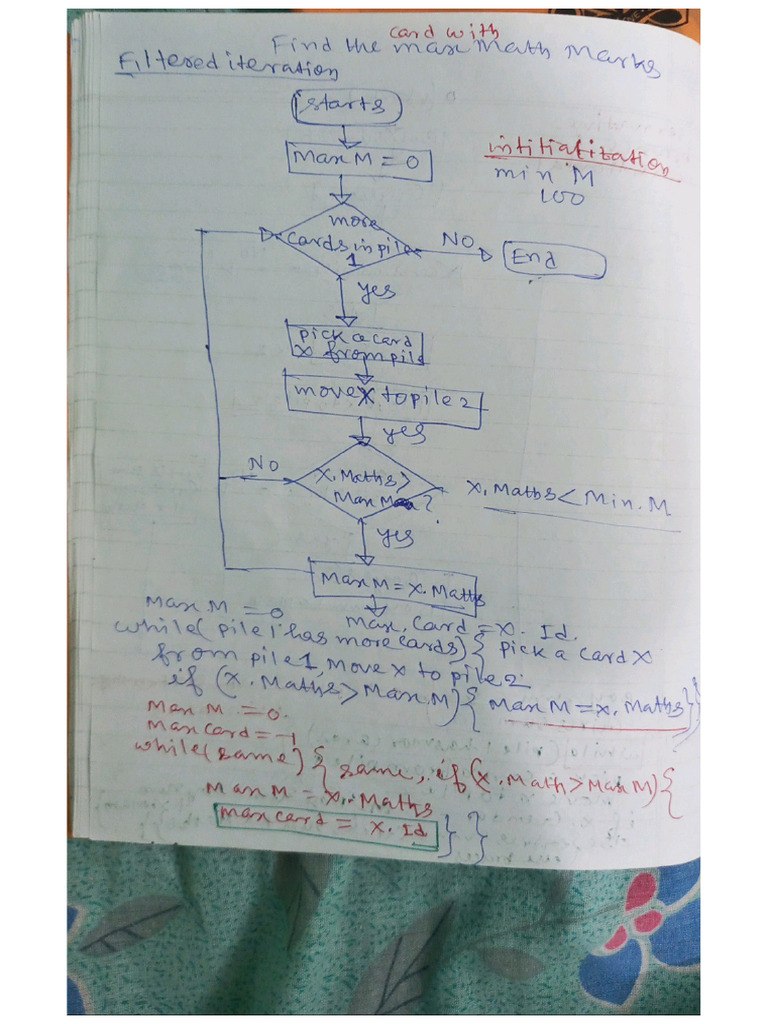 card with
Find the max Math Marks
Filtered iteration
starts
Max M = 0
intitialization
min M
100
more
cards in pile
1
NO
End
yes
pick a card
X from pile
move X to pile 2
yes
NO
X. Maths >
Max M ?
X. Maths < Min. M
yes
Max M = X. Maths
Max M = 0
Max. Card = X. Id.
while( pile 1 has more cards) { pick a card X
from pile 1, move X to pile 2
if (X. Maths > Max. M) { Max M = X. Maths } }
Max M = 0.
Max card = -1
while(same) { same, if (X. Math > Max M) {
Max M = X. Maths
max card = X. Id. } }